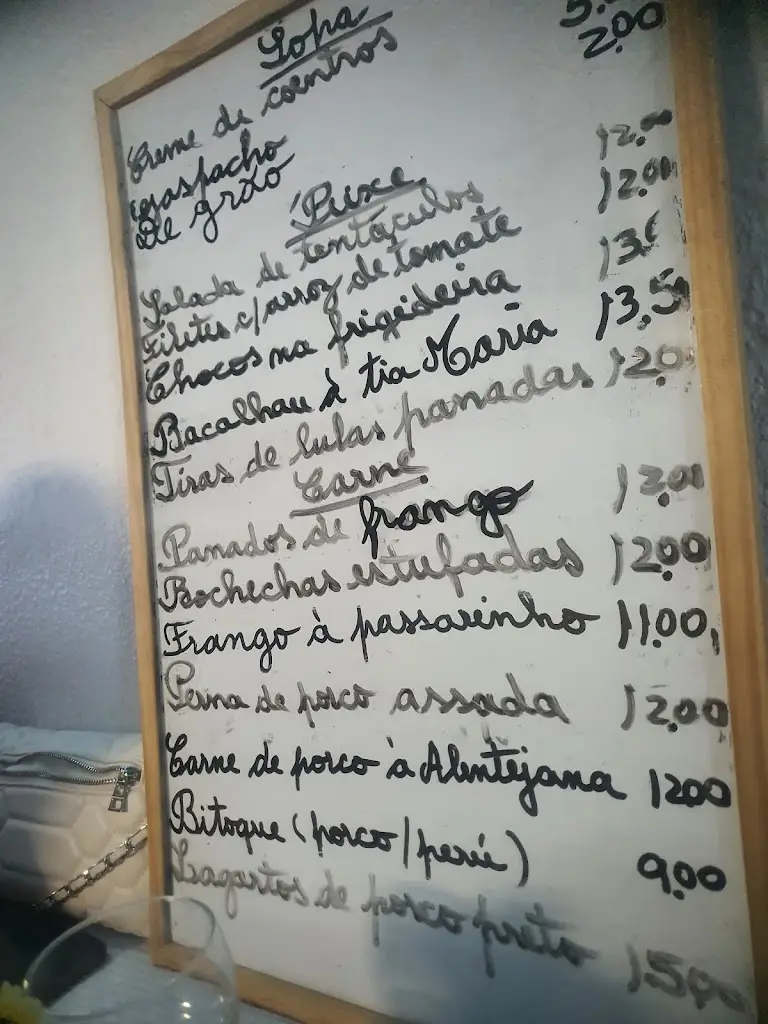 Sopa
Creme de coentros
gaspacho 2.00
De grão
Peixe
Salada de tentáculos 12.00
Filetes c/arroz de tomate 12.00
Chocos na frigideira
Bacalhau à tia Maria 13,50
Tiras de lulas panadas 12.0
Carne
Panados de frango 12.00
Bochechas estufadas 12.00
Frango à passarinho 11.00
Perna de porco assada 12.00
Carne de porco à Alentejana 1200
Bitoque (porco/peru) 9.00
Lagartos de porco preto 15.00